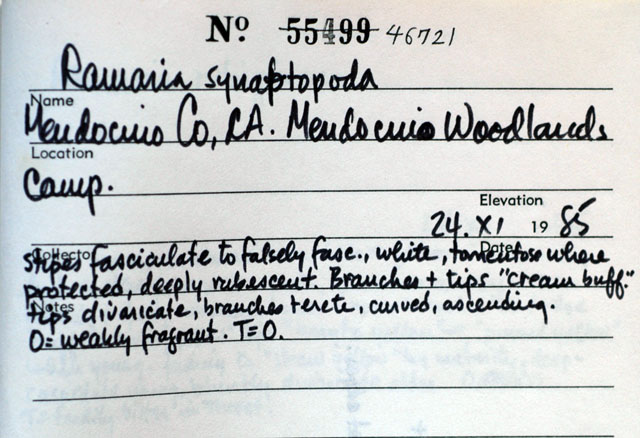 Nº 55499 46721
Ramaria synaptopoda
Name
Mendocino Co, CA. Mendocino Woodlands
Location
Camp.
Elevation
24. XI 1985
Collector Date
stipes fasciculate to falsely fasc., white, tomentose where
protected, deeply rubescent. Branches + tips "cream buff."
Notes
tips divaricate, branches terete, curved, ascending.
O= weakly fragrant. T=O.